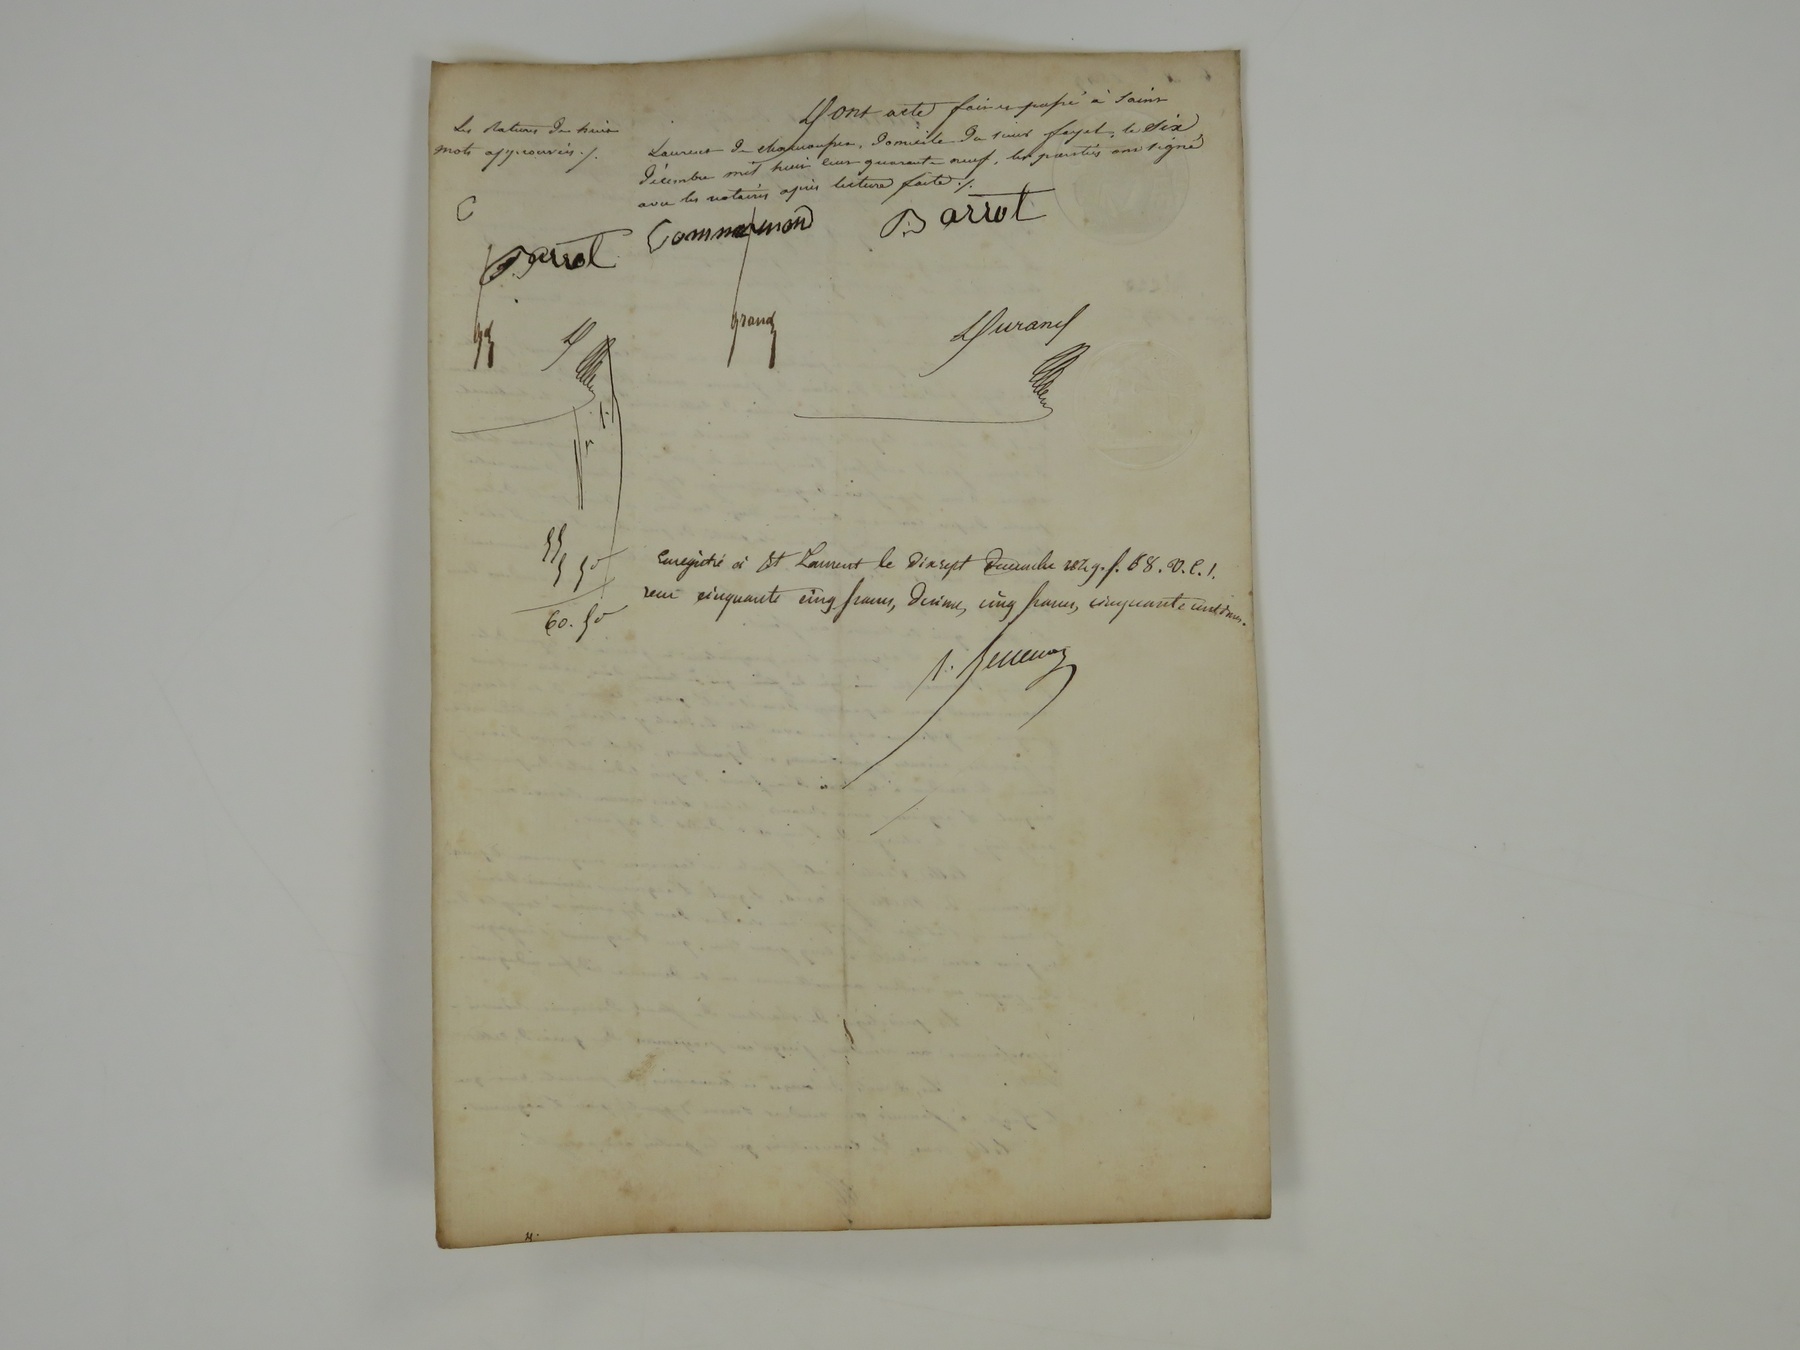 Les ratures de huit
mots approuvées ./.
Dont acte fait et passé à Saint
Laurent de chamousset, domicile du sieur fayet, le Six
décembre mil huit cent quarante neuf, les parties ont signé
avec les notaires après lecture faite ./.
C
Barrot Commarmond Barrot
grand
Durand
55
5 50
60. 50
Enregistré à St Laurent le dixsept decembre 1849. f. 68. V. C. 1.
reçu cinquante cinq francs, décime, cinq francs, cinquante centimes.